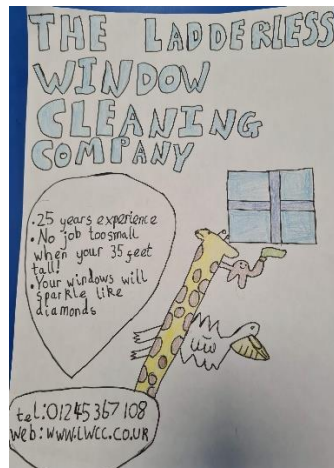 THE LADDERLESS
WINDOW
CLEANING
COMPANY
.25 years experience
.No job too small
when your 35 feet
tall!
.Your windows will
sparkle like
diamonds
tel:01245367108
web:www.LWCC.CO.UR